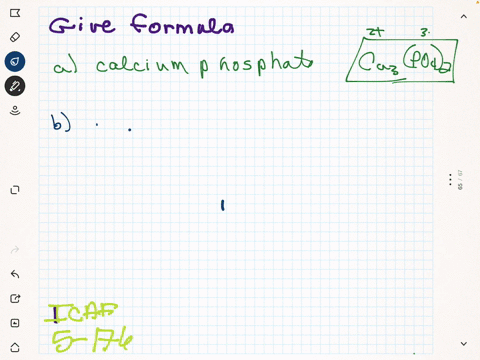 Give formula
2+ 3-
a) calcium phosphate Ca3(PO4)2
b)
5-17-6